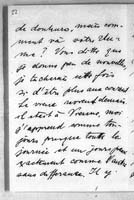 de douleurs, mais com-
ment va votre rhu-
me ? Vous dites que
je donne peu de nouvelles
je tâcherai cette fois
si d'être plus aux
Le vous revoit demain
il était à Vienne moi
j'apprend comme tou-
jours presque toute la
journée et un jour passe
exactement comme l'autre
sans différence. Il y